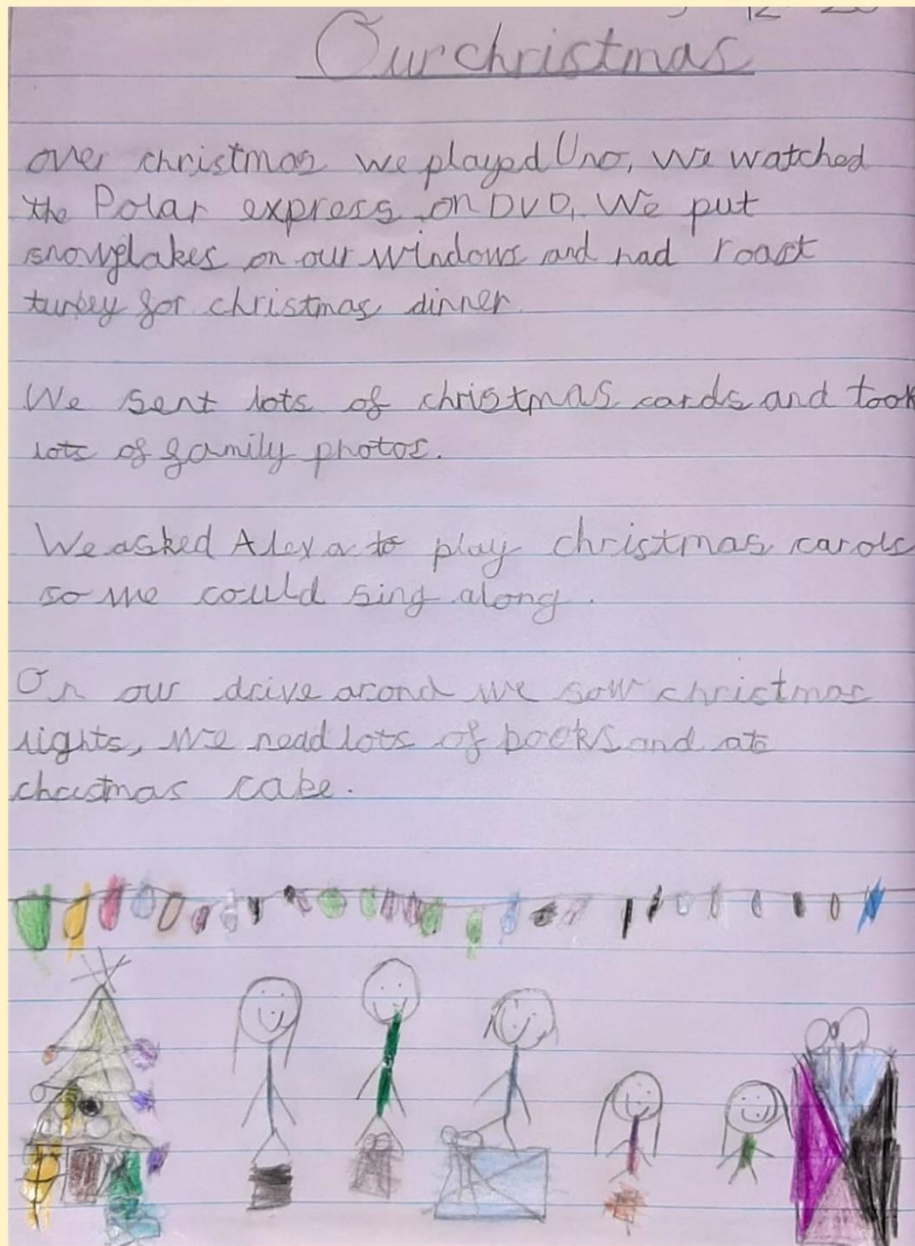 Our christmas
over christmas we played Uno, We watched
the Polar express on DVD, We put
snowflakes on our windows and had roast
turkey for christmas dinner.
We sent lots of christmas cards and took
lots of family photos.
We asked Alexa to play christmas carols
so we could sing along.
On our drive arond we saw christmas
lights, We read lots of books and ate
christmas cake.